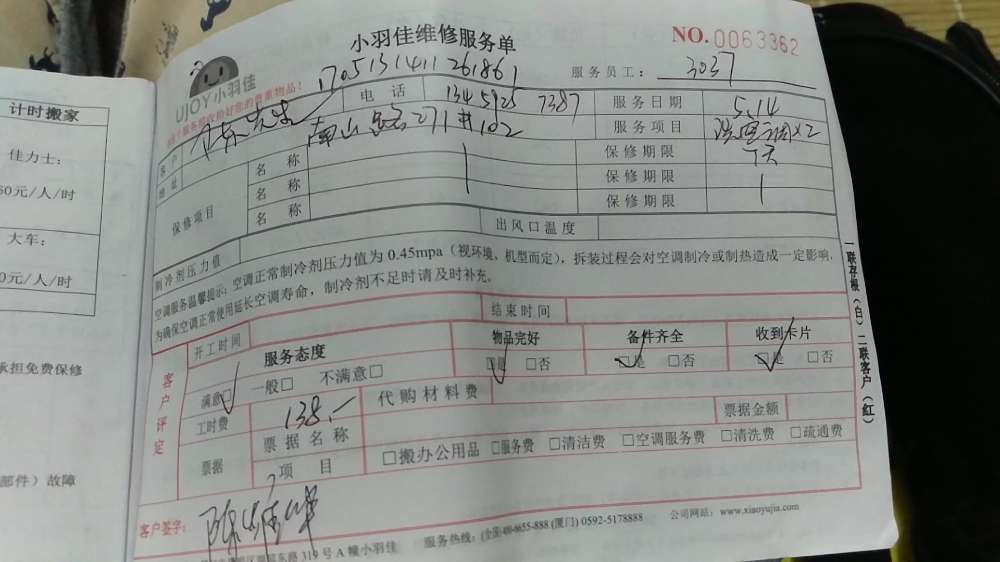 小羽佳维修服务单
NO.0063362
UJOY小羽佳
17051314112 61861
服务员工: 3037
客户
电话 1345925 7387
服务日期 5.14
地址 南山路271#102
服务项目 洗空调x2
保修项目
名称
保修期限
名称
保修期限
名称
保修期限
制冷剂压力值
出风口温度
空调服务温馨提示:空调正常制冷剂压力值为 0.45mpa(视环境、机型而定),拆装过程会对空调制冷或制热造成一定影响,
为确保空调正常使用延长空调寿命,制冷剂不足时请及时补充。
客户评定
开工时间
结束时间
服务态度
物品完好
备件齐全
收到卡片
满意□ 一般□ 不满意□
□是 □否
□是 □否
□是 □否
工时费 138.-
代购材料费
票据
票据名称
票据金额
项目
□搬办公用品 □服务费 □清洁费 □空调服务费 □清洗费 □疏通费
客户签字:
东路 319 号 A 幢小羽佳
服务热线:
(厦门) 0592-5178888
公司网站:www.xiaoyujia.com
一联存根(白) 二联客户(红)
计时搬家
佳力士:
60元/人/时
大车:
0元/人/时
承担免费保修
部件)故障